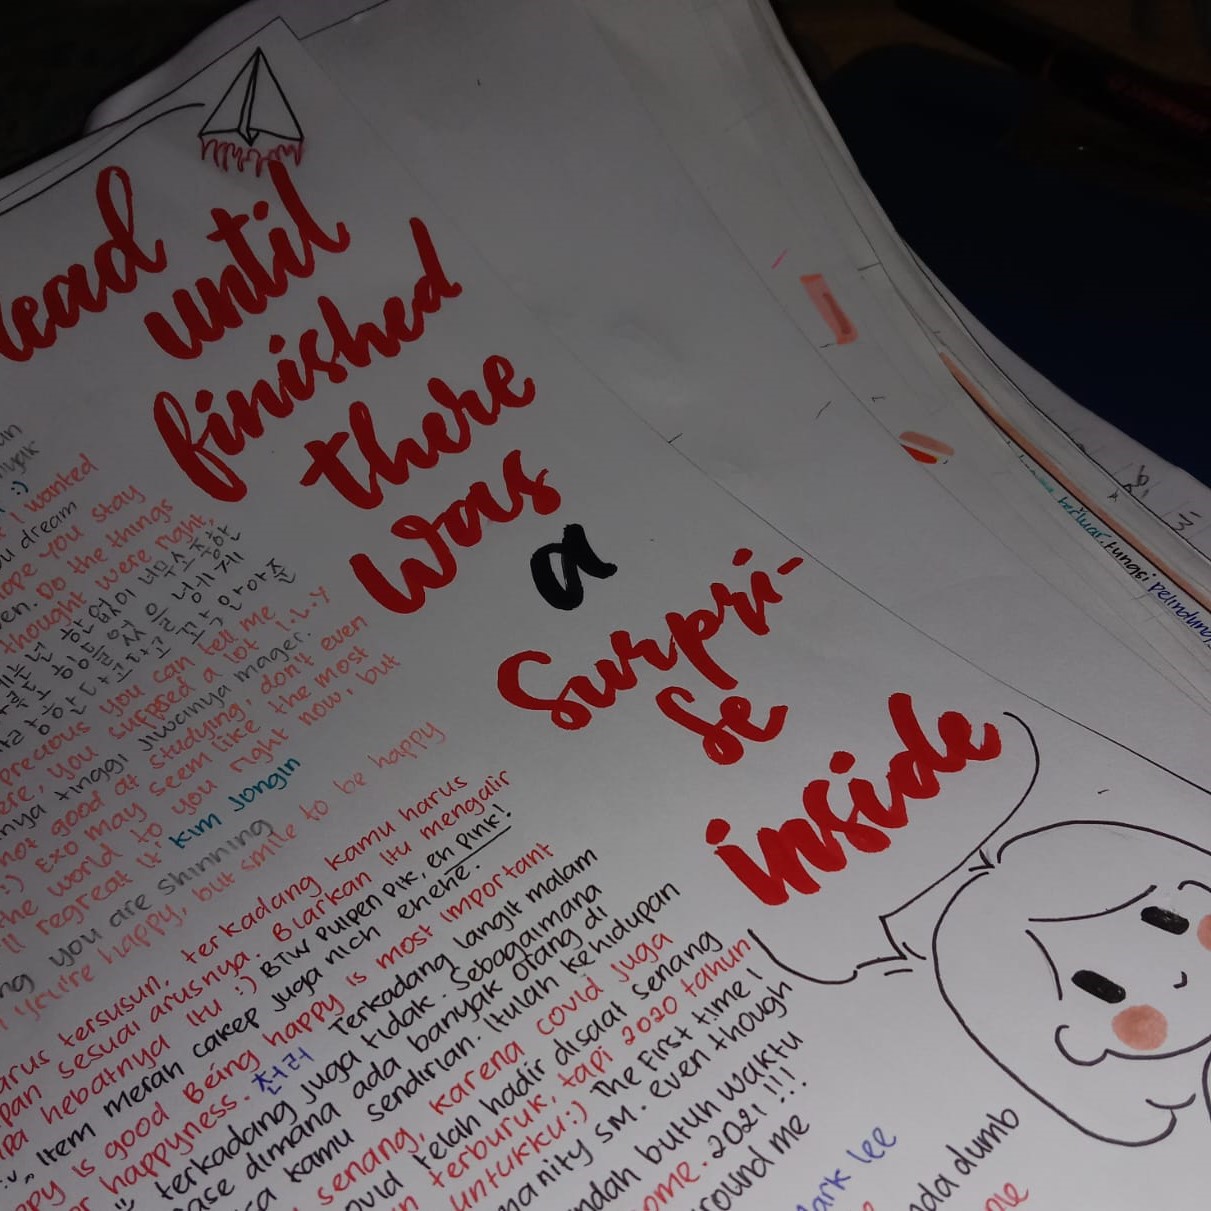 Read
until
finished
there
was
a
Surpri-
se
inside
:)
I wanted
u dream
hope you stay
en. Do the things
thought were right,
precious you can tell me
ere, you supposed a lot I.L.Y
nya tinggi jiwanya mager.
not good at studying, don't even
:) EXO may seem like the most
the world to you right now, but
'll regreat it. Kim Jongin
ng you are shinning
you're happy, but smile to be happy
arus tersusun, terkadang kamu harus
pan sesuai arusnya. Biarkan itu mengalir
pa hebatnya itu :) BTW Pulpen PIK, eh PINK!
item merah cakep juga nich ehehe.
ppy is good Being happy is most important
r happyness. 첸러 Terkadang langit malam
terkadang juga tidak. Sebagaimana
ase dimana ada banyak orang di
a kamu sendirian. Itulah kehidupan
senang, karena covid juga
ovid telah hadir disaat senang
n terburuk, tapi 2020 tahun
untukku:) The First time I
manity SM. even though
ndah butuh waktu
ome. 2021 !!!
round me
Mark Lee
nda dumb
berluar, fungsi pelindung